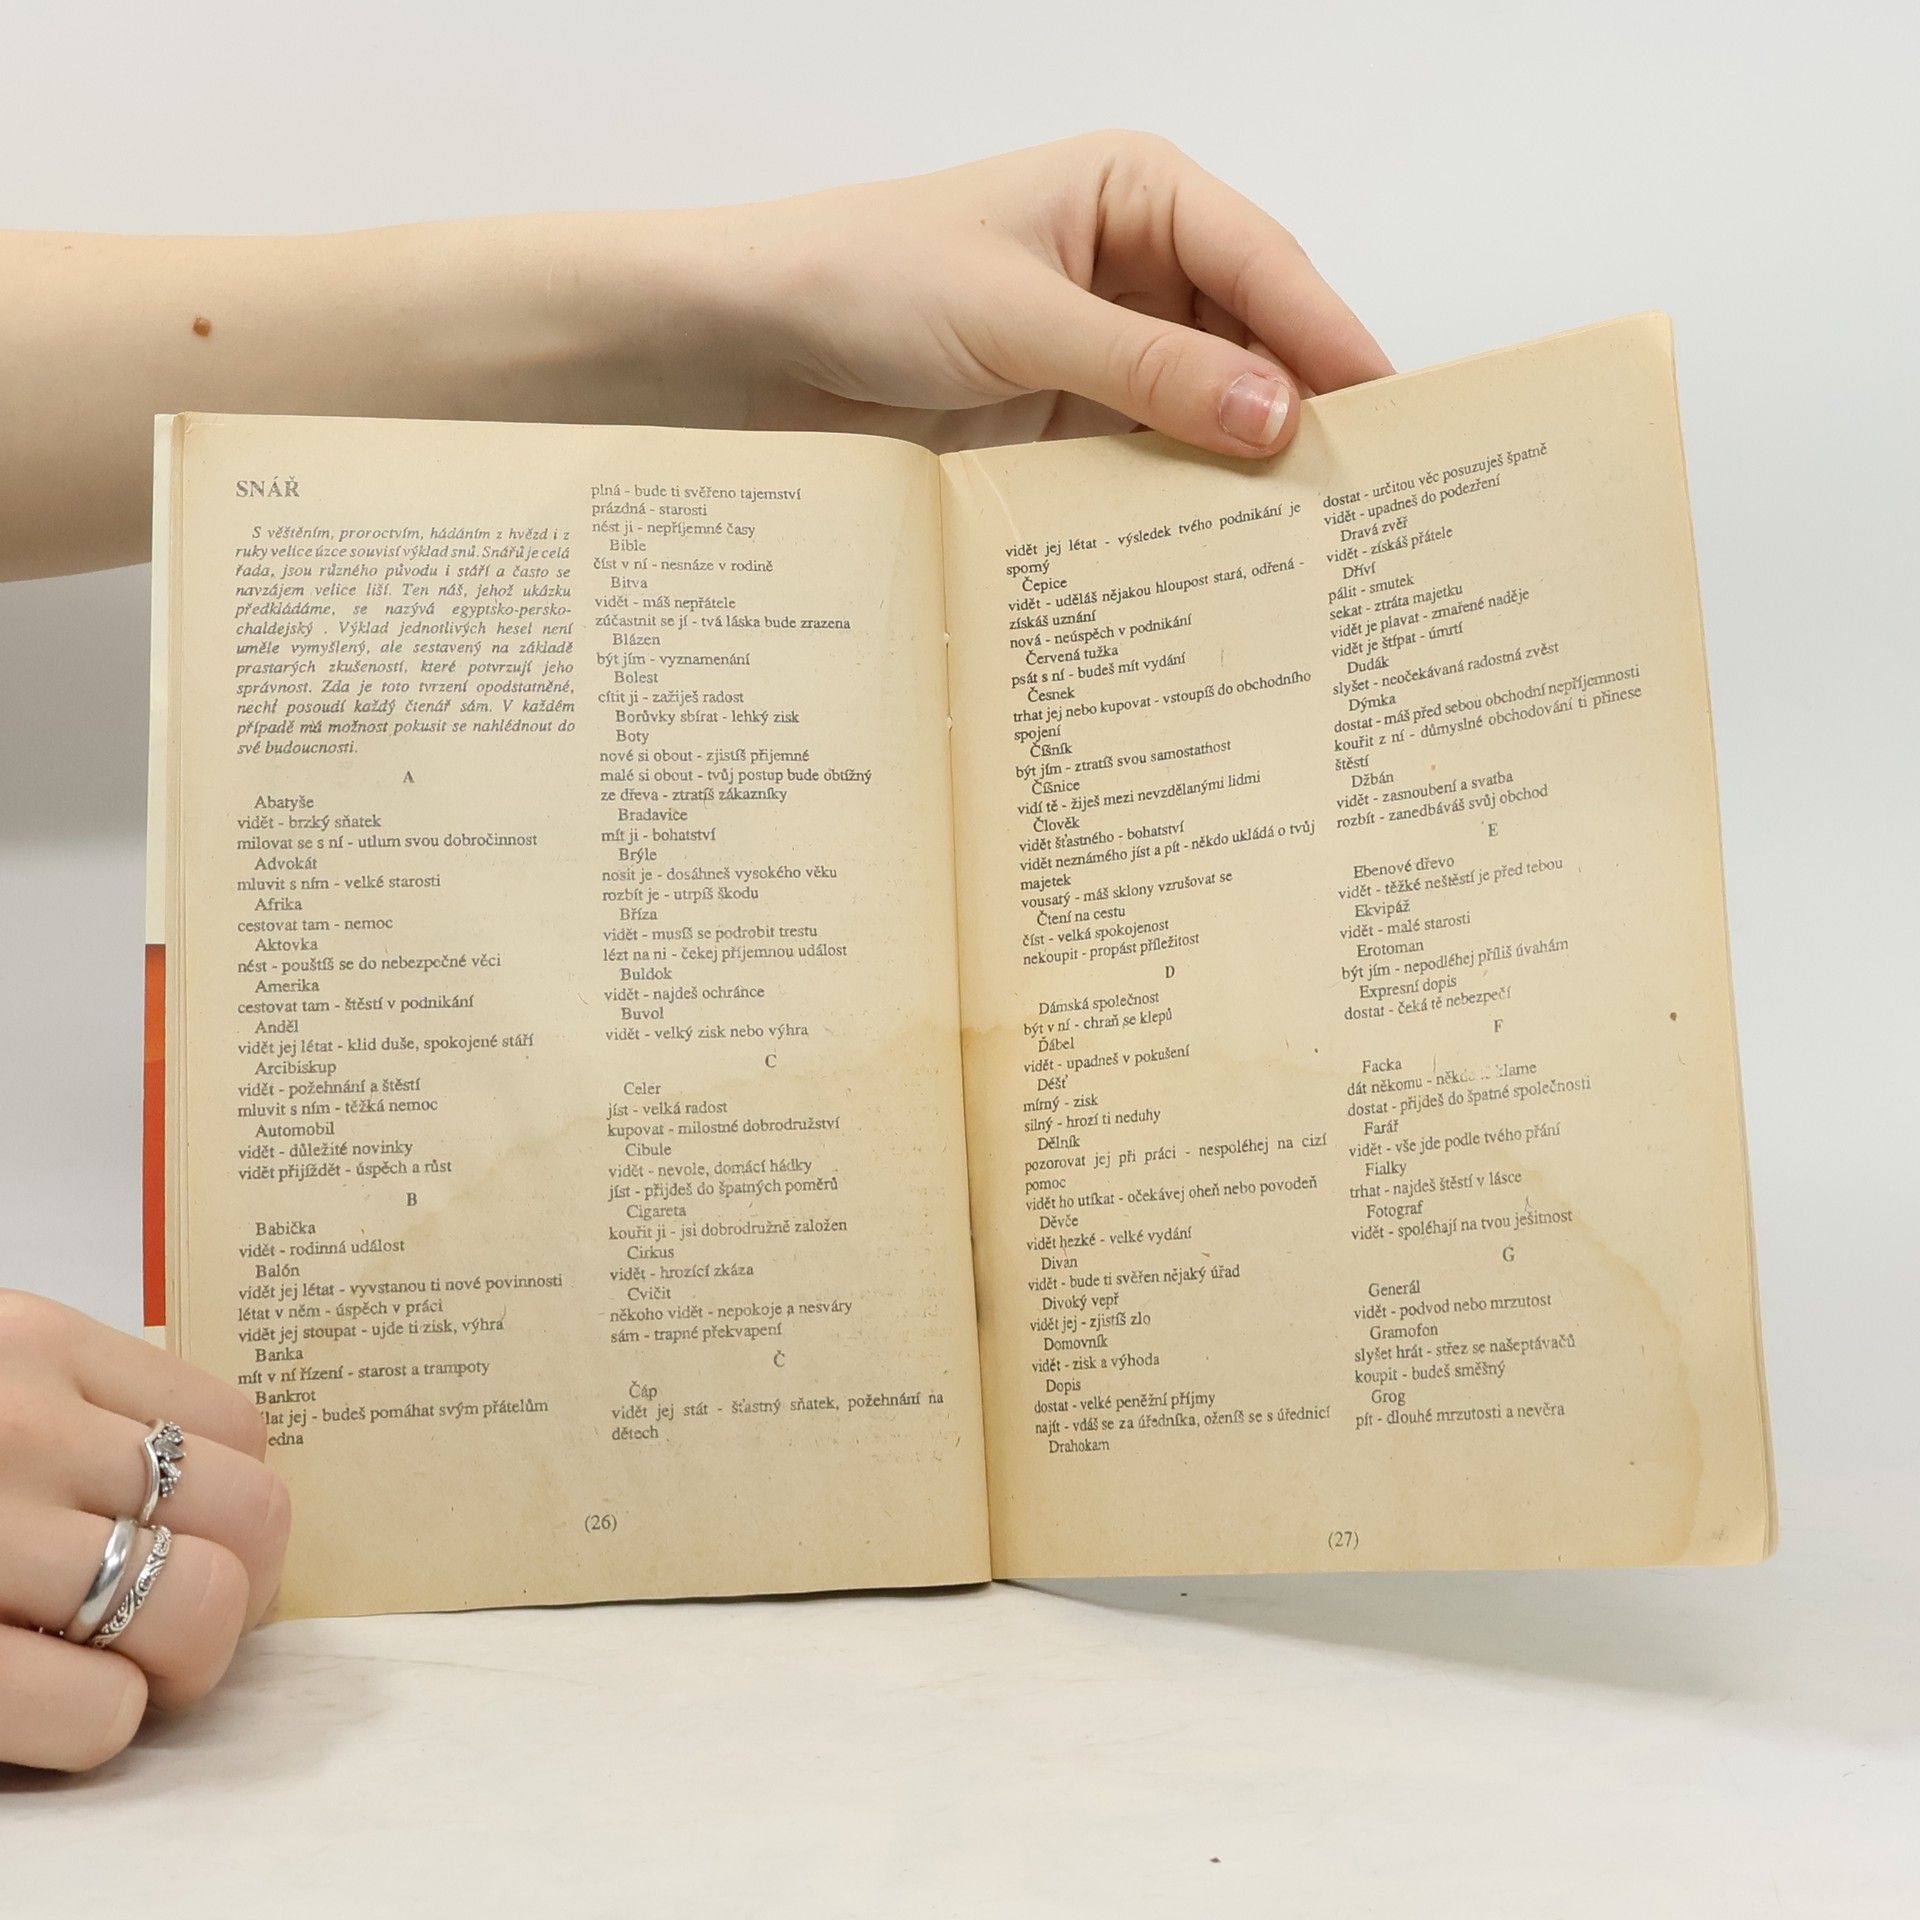 SNÁŘ
S věštěním, proroctvím, hádáním z hvězd i z
ruky velice úzce souvisí výklad snů. Snářů je celá
řada, jsou různého původu i stáří a často se
navzájem velice liší. Ten náš, jehož ukázku
předkládáme, se nazývá egyptsko-persko-
chaldejský . Výklad jednotlivých hesel není
uměle vymyšlený, ale sestavený na základě
prastarých zkušeností, které potvrzují jeho
správnost. Zda je toto tvrzení opodstatněné,
nechť posoudí každý čtenář sám. V každém
případě má možnost pokusit se nahlédnout do
své budoucnosti.
A
Abatyše
vidět - brzký sňatek
milovat se s ní - utlum svou dobročinnost
Advokát
mluvit s ním - velké starosti
Afrika
cestovat tam - nemoc
Aktovka
nést - pouštíš se do nebezpečné věci
Amerika
cestovat tam - štěstí v podnikání
Anděl
vidět jej létat - klid duše, spokojené stáří
Arcibiskup
vidět - požehnání a štěstí
mluvit s ním - těžká nemoc
Automobil
vidět - důležité novinky
vidět přijíždět - úspěch a růst
B
Babička
vidět - rodinná událost
Balón
vidět jej létat - vyvstanou ti nové povinnosti
létat v něm - úspěch v práci
vidět jej stoupat - ujde ti zisk, výhra
Banka
mít v ní řízení - starost a trampoty
Bankrot
jej - budeš pomáhat svým přátelům
plná - bude ti svěřeno tajemství
prázdná - starosti
nést ji - nepříjemné časy
Bible
číst v ní - nesnáze v rodině
Bitva
vidět - máš nepřátele
zúčastnit se jí - tvá láska bude zrazena
Blázen
být jím - vyznamenání
Bolest
cítit ji - zažiješ radost
Borůvky sbírat - lehký zisk
Boty
nové si obout - zjistíš příjemné
malé si obout - tvůj postup bude obtížný
ze dřeva - ztratíš zákazníky
Bradavice
mít ji - bohatství
Brýle
nosit je - dosáhneš vysokého věku
rozbít je - utrpíš škodu
Bříza
vidět - musíš se podrobit trestu
lézt na ni - čekej příjemnou událost
Buldok
vidět - najdeš ochránce
Buvol
vidět - velký zisk nebo výhra
C
Celer
jíst - velká radost
kupovat - milostné dobrodružství
Cibule
vidět - nevole, domácí hádky
jíst - přijdeš do špatných poměrů
Cigareta
kouřit ji - jsi dobrodružně založen
Cirkus
vidět - hrozící zkáza
Cvičit
někoho vidět - nepokoje a nesváry
sám - trapné překvapení
Č
Čáp
vidět jej stát - šťastný sňatek, požehnání na
dětech
(26)
vidět jej létat - výsledek tvého podnikání je
sporný
Čepice
vidět - uděláš nějakou hloupost stará, odřená -
získáš uznání
nová - neúspěch v podnikání
Červená tužka
psát s ní - budeš mít vydání
Česnek
trhat jej nebo kupovat - vstoupíš do obchodního
spojení
Číšník
být jím - ztratíš svou samostatnost
Číšnice
vidí tě - žiješ mezi nevzdělanými lidmi
Člověk
vidět šťastného - bohatství
vidět neznámého jíst a pít - někdo ukládá o tvůj
majetek
vousatý - máš sklony vzrušovat se
Čtení na cestu
číst - velká spokojenost
nekoupit - propást příležitost
D
Dámská společnost
být v ní - chraň se klepů
Ďábel
vidět - upadneš v pokušení
Déšť
mírný - zisk
silný - hrozí ti neduhy
Dělník
pozorovat jej při práci - nespoléhej na cizí
pomoc
vidět ho utíkat - očekávej oheň nebo povodeň
Děvče
vidět hezké - velké vydání
Divan
vidět - bude ti svěřen nějaký úřad
Divoký vepř
vidět jej - zjistíš zlo
Domovník
vidět - zisk a výhoda
Dopis
dostat - velké peněžní příjmy
najít - vdáš se za úředníka, oženíš se s úřednicí
Drahokam
dostat - určitou věc posuzuješ špatně
vidět - upadneš do podezření
Dravá zvěř
vidět - získáš přátele
Dříví
pálit - smutek
sekat - ztráta majetku
vidět je plavat - zmařené naděje
vidět je štípat - úmrtí
Dudák
slyšet - neočekávaná radostná zvěst
Dýmka
dostat - máš před sebou obchodní nepříjemnosti
kouřit z ní - důmyslné obchodování ti přinese
štěstí
Džbán
vidět - zasnoubení a svatba
rozbít - zanedbáváš svůj obchod
E
Ebenové dřevo
vidět - těžké neštěstí je před tebou
Ekvipáž
vidět - malé starosti
Erotoman
být jím - nepodléhej příliš úvahám
Expresní dopis
dostat - čeká tě nebezpečí
F
Facka
dát někomu - někdo klame
dostat - přijdeš do špatné společnosti
Farář
vidět - vše jde podle tvého přání
Fialky
trhat - najdeš štěstí v lásce
Fotograf
vidět - spoléhají na tvou ješitnost
G
Generál
vidět - podvod nebo mrzutost
Gramofon
slyšet hrát - střez se našeptávačů
koupit - budeš směšný
Grog
pít - dlouhé mrzutosti a nevěra
(27)